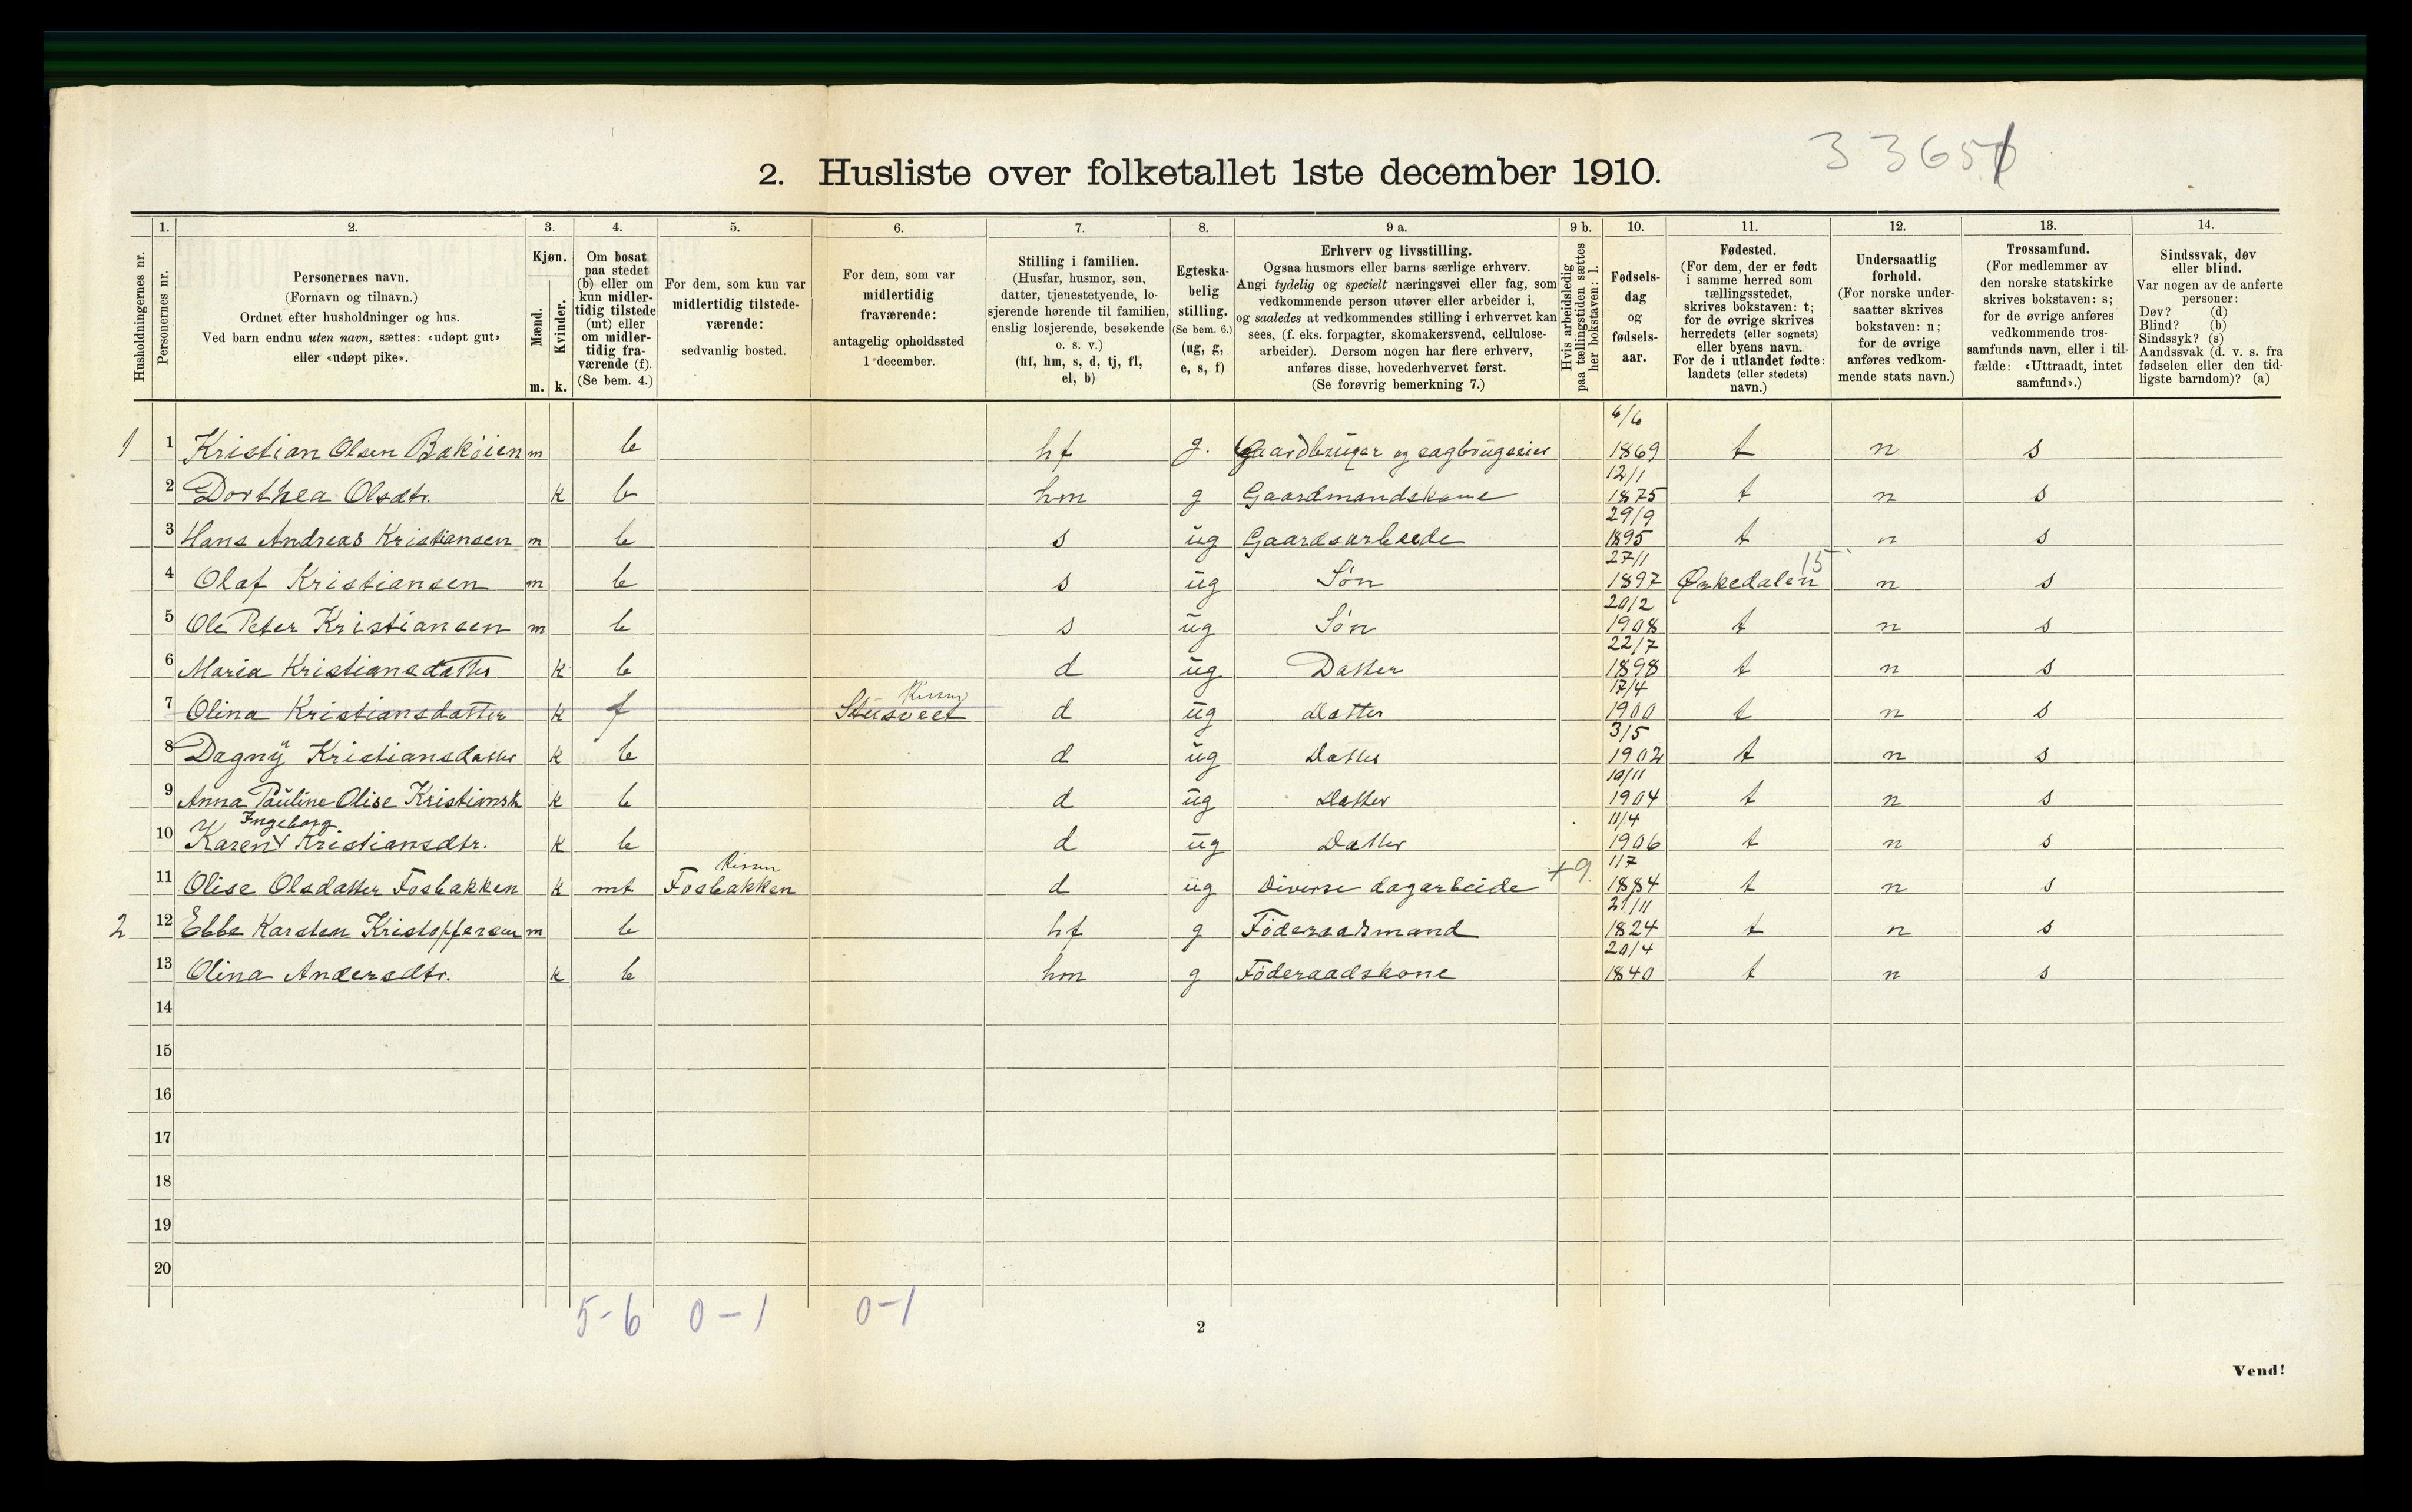 3365
2. Husliste over folketallet 1ste december 1910.
1. 2. 3. 4. 5. 6. 7. 8. 9 a. 9 b. 10. 11. 12. 13. 14.
Husholdningernes nr.
Personernes nr.
Personernes navn.
(Fornavn og tilnavn.)
Ordnet efter husholdninger og hus.
Ved barn endnu uten navn, sættes: «udøpt gut»
eller «udøpt pike».
Kjøn.
Mænd.
Kvinder.
m. k.
Om bosat
paa stedet
(b) eller om
kun midler-
tidig tilstede
(mt) eller
om midler-
tidig fra-
værende (f).
(Se bem. 4.)
For dem, som kun var
midlertidig tilstede-
værende:
sedvanlig bosted.
For dem, som var
midlertidig
fraværende:
antagelig opholdssted
1 december.
Stilling i familien.
(Husfar, husmor, søn,
datter, tjenestetyende, lo-
sjerende hørende til familien,
enslig losjerende, besøkende
o. s. v.)
(hf, hm, s, d, tj, fl,
el, b)
Egteska-
belig
stilling.
(Se bem. 6.)
(ug, g,
e, s, f)
Erhverv og livsstilling.
Ogsaa husmors eller barns særlige erhverv.
Angi tydelig og specielt næringsvei eller fag, som
vedkommende person utøver eller arbeider i,
og saaledes at vedkommendes stilling i erhvervet kan
sees, (f. eks. forpagter, skomakersvend, cellulose-
arbeider). Dersom nogen har flere erhverv,
anføres disse, hovederhvervet først.
(Se forøvrig bemerkning 7.)
Hvis arbeidsledig
paa tællingstiden sættes
her bokstaven: l.
Fødsels-
dag
og
fødsels-
aar.
Fødested.
(For dem, der er født
i samme herred som
tællingsstedet,
skrives bokstaven: t;
for de øvrige skrives
herredets (eller sognets)
eller byens navn.
For de i utlandet fødte:
landets (eller stedets)
navn.)
Undersaatlig
forhold.
(For norske under-
saatter skrives
bokstaven: n;
for de øvrige
anføres vedkom-
mende stats navn.)
Trossamfund.
(For medlemmer av
den norske statskirke
skrives bokstaven: s;
for de øvrige anføres
vedkommende tros-
samfunds navn, eller i til-
fælde: «Uttraadt, intet
samfund».)
Sindssvak, døv
eller blind.
Var nogen av de anførte
personer:
Døv? (d)
Blind? (b)
Sindssyk? (s)
Aandssvak (d. v. s. fra
fødselen eller den tid-
ligste barndom)? (a)
1 1 Kristian Olsen Bakøien m b hf g. Gaardbruger og sagbrugseier 4/6 1869 t n s
2 Dorthea Olsdtr. k b hm g Gaardmandskone 12/1 1875 t n s
3 Hans Andreas Kristiansen m b s ug Gaardsarbeide 29/9 1895 t n s
4 Olaf Kristiansen m b s ug Søn 27/11 1897 Ørkedalen 15 n s
5 Ole Peter Kristiansen m b s ug Søn 20/2 1908 t n s
6 Maria Kristiansdatter k b d ug Datter 22/7 1898 t n s
7 Olina Kristiansdatter k f d ug Datter 17/4 1900 t n s
8 Dagny Kristiansdatter k b d ug Datter 3/5 1902 t n s
9 Anna Pauline Olise k b d ug Datter 10/11 1904 t n s
10 Karen Ingeborg Kristiansdtr. k b d ug Datter 11/4 1906 t n s
11 Olise Olsdatter Fosbakken k mt Fosbakken d ug Diverse dagarbeide +9. 1/7 1884 t n s
2 12 Ebbe Karsten Kristoffersen m b hf g Føderaadsmand 21/11 1824 t n s
13 Olina Andersdtr. k b hm g Føderaadskone 20/4 1840 t n s
14
15
16
17
18
19
20
5-6 0-1 0-1
2
Vend!